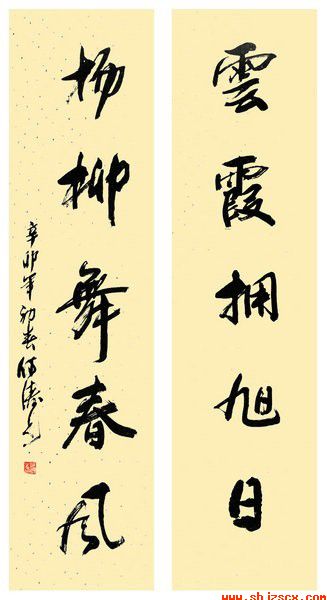 雲霞拥旭日
杨柳舞春风
辛卯年初春何涛书
www.shizscx.com